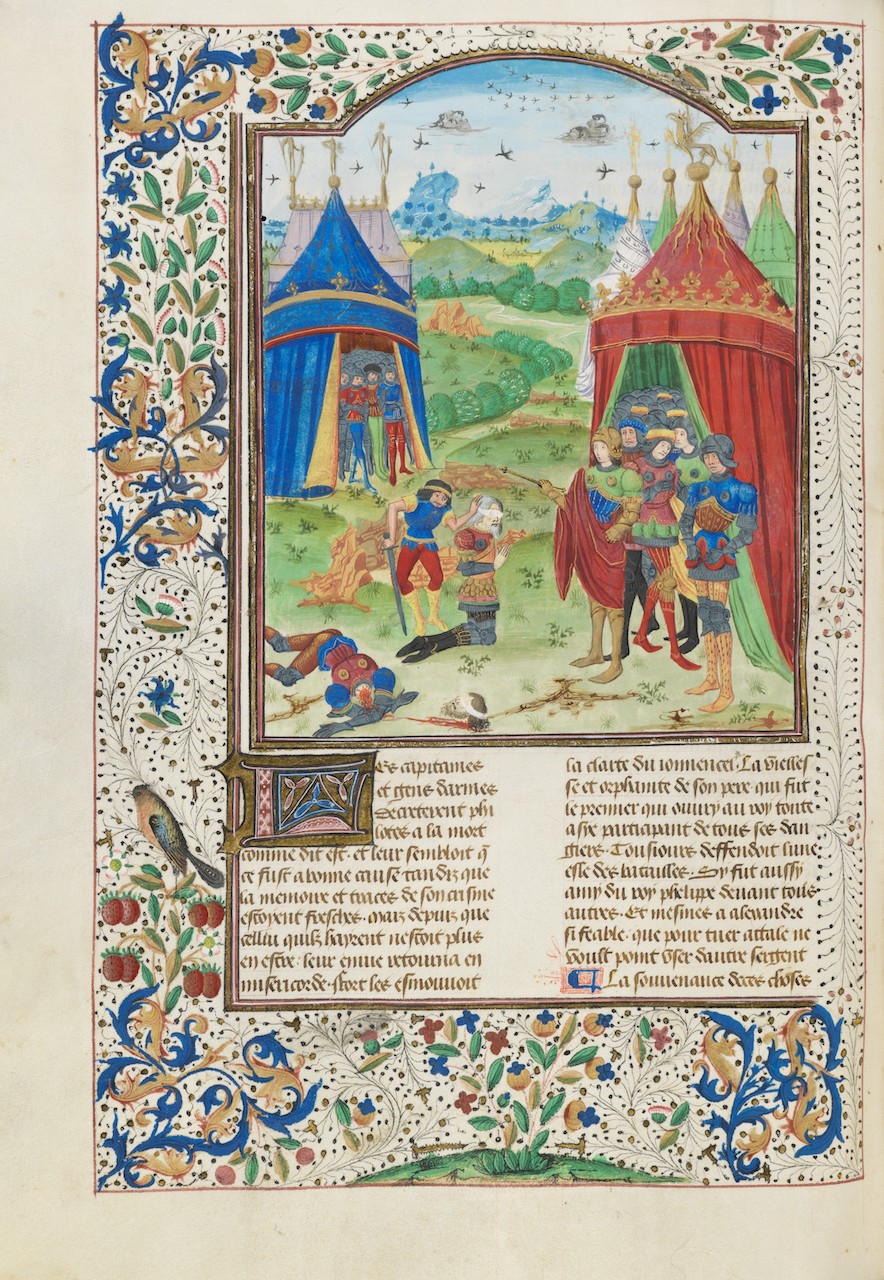 Les capitaines
et gens darmes
Decreterent phi
lotes a la mort
comme dit est. et leur sembloit q̄
ce fust a bonne cause tandiz que
la memoire et traces de son crisme
estoyent fresches. maiz depuiz que
cellui quilz hayrent nestoit plus
en estre. leur enuie retourna en
misericorde. Fort les esmouuoit
la clarte du iouuencel. La vielles
se et orphanite de son pere qui fut
le premier qui ouury au roy toute
asie participant de tous ses dan
giers. Tousiours deffendoit lune
esle des batailles. Sy fut aussy
amy du roy phelippe deuant touls
autres. Et mesmes a alexandre
si feable. que pour tuer attale ne
voult point vser dautre sergent
La souuenance de ces choses